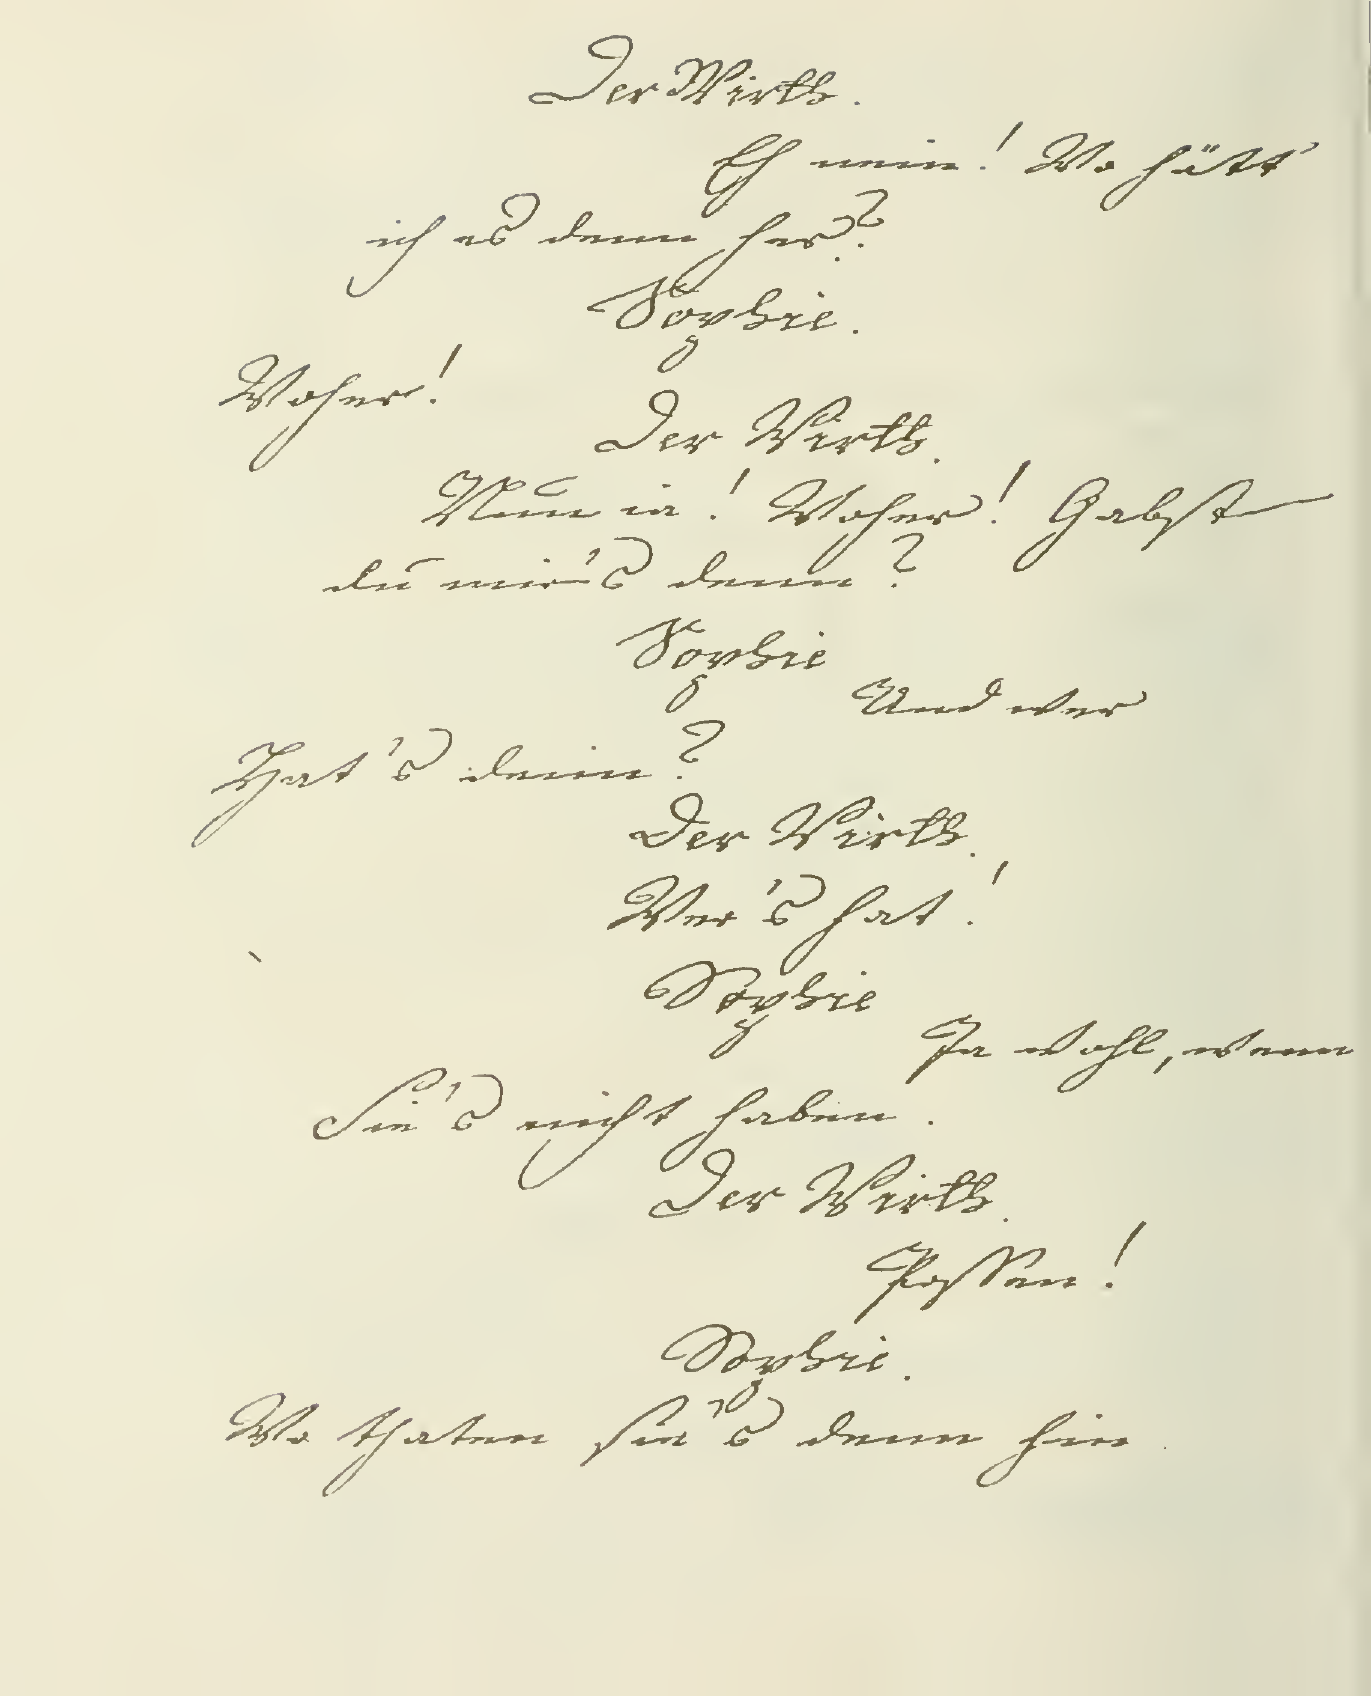 Der Wirth.
Eh nein! Wo hätt'
ich es denn her?
Sophie.
Woher!
Der Wirth.
Nun ia! Woher! Gabst
du mir's denn?
Sophie
Und wer
Hat's denn?
Der Wirth.
Wer's hat!
Sophie
Ja wohl, wenn
Sie's nicht haben.
Der Wirth.
Possen!
Sophie.
Wo thaten sie's denn hin